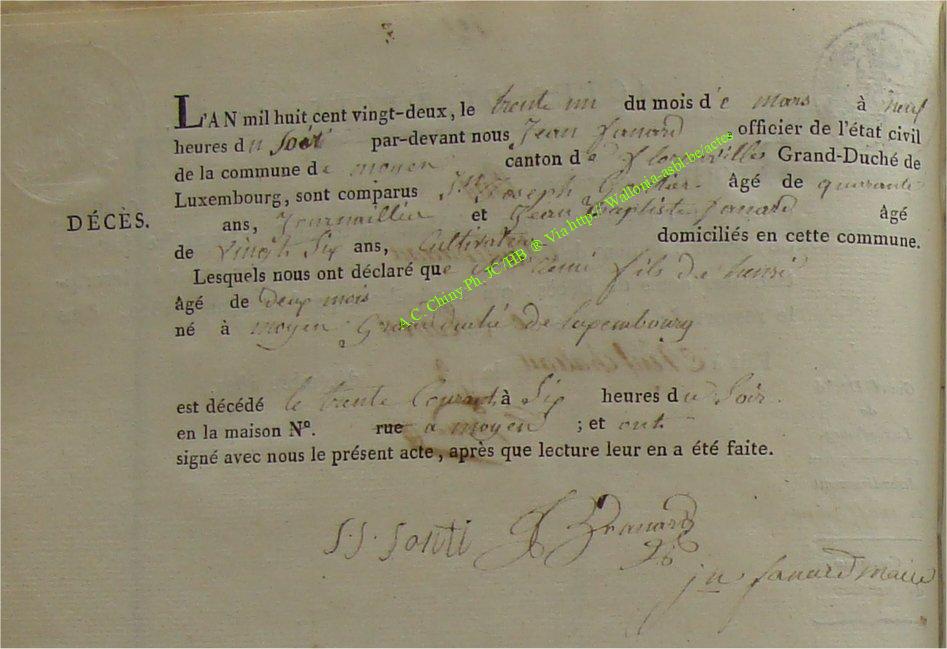 L'AN mil huit cent vingt-deux, le trente un du mois de mars à neuf
heures du Soir par-devant nous Jean fanard, officier de l'état civil
de la commune de moyen canton de florenville Grand-Duché de
Luxembourg, sont comparus Joseph âgé de quarante
DÉCÈS.
ans, Journaillier et Jean Baptiste fanard âgé
de vingt Six ans, Cultivateur domiciliés en cette commune.
Lesquels nous ont déclaré que fils de henri
âgé de deux mois
né à moyen Grand duché de luxembourg
est décédé le trente Courant à Six heures du Soir
en la maison N°. rue a moyen ; et ont
signé avec nous le présent acte, après que lecture leur en a été faite.
J. fanard
jn fanard maire
A.C. Chiny Ph. JC/HB ® Via http://Wallonia-asbl.be/actes